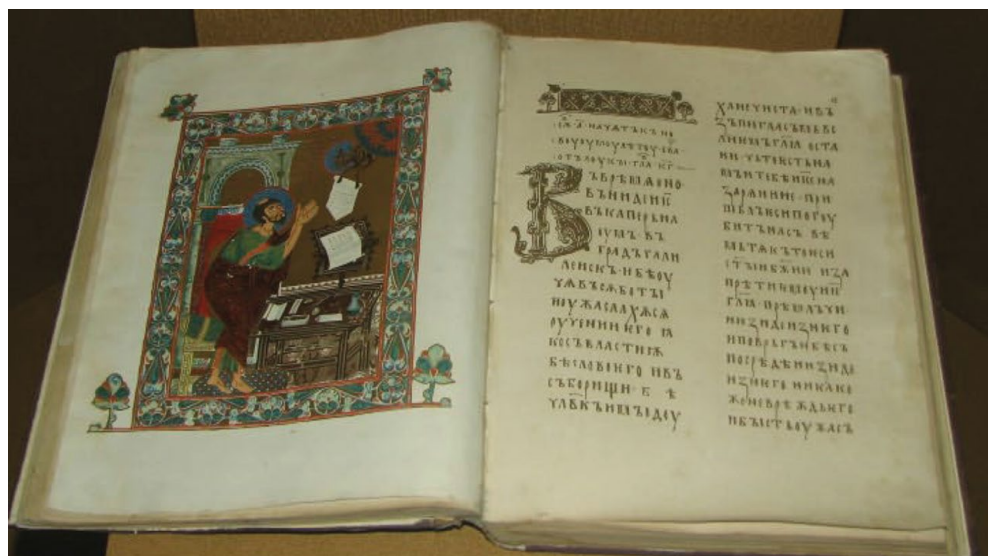 сѫ҃ · а҃ · начѧтъкъ но
воуоумоу лѣтоу · ева ·
отъ лоукы · гла · кг҃ —
Въ врѣмѧ оно
въниде и҃с
въ каперьна
оумъ · въ
градъ гали
леискъ · и бѣ оу
чѧ въ сѫботы
и оужасаахѫсѧ
о оучении ѥго ꙗ
ко съ властиѭ
бѣ слово ѥго · и въ
съборищи · бѣ
чл҃вкъ имы доу
ха нечиста · и въ
зъпи гласъмь ве
лиимь гл҃ѧ оста
ни · чьто ѥсть на
мъ и тебѣ и҃се на
зарѧнине · при
шьлъ ѥси погоу
битъ насъ · вѣ
мь тѧ къто ѥси
ст҃ыи б҃жии · и за
прѣти ѥмоу и҃с
гл҃ѧ · прѣмлъчи ·
и изиди из нѥго
и повръгъ и бѣсъ
посрѣдѣ и изиде
из нѥго никако
же не врѣждь ѥго
и бысть оужасъ